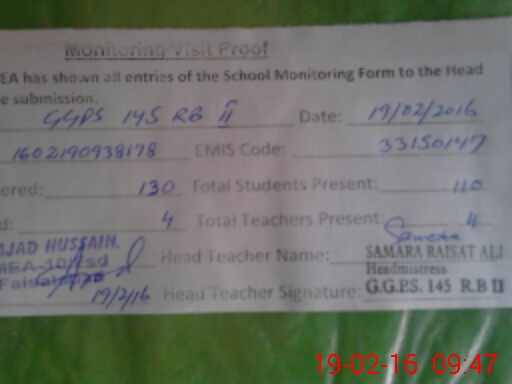 Monitoring Visit Proof
EA has shown all entries of the School Monitoring Form to the Head
e submission.
GGPS 145 RB II Date: 19/02/2016
1602190938178 EMIS Code: 33150147
ered: 130 Total Students Present: 110
d: 4 Total Teachers Present: 4
AJAD HUSSAIN. Head Teacher Name: SAMARA RAISAT ALI
Headmistress
19/2/16 Head Teacher Signature: G.G.P.S. 145 R.B II
19-02-16 09:47